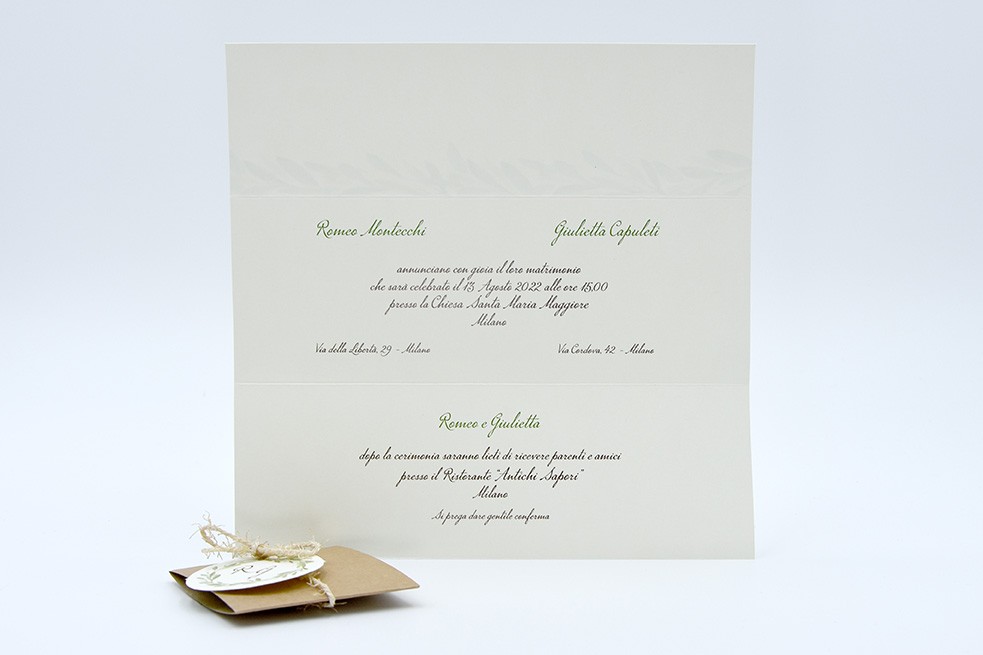 Romeo Montecchi
Giulietta Capuleti
annunciano con gioia il loro matrimonio
che sarà celebrato il 13 Agosto 2022 alle ore 15,00
presso la Chiesa Santa Maria Maggiore
Milano
Via della Libertà, 29 - Milano
Via Cordova, 42 - Milano
Romeo e Giulietta
dopo la cerimonia saranno lieti di ricevere parenti e amici
presso il Ristorante "Antichi Sapori"
Milano
Si prega dare gentile conferma
R G